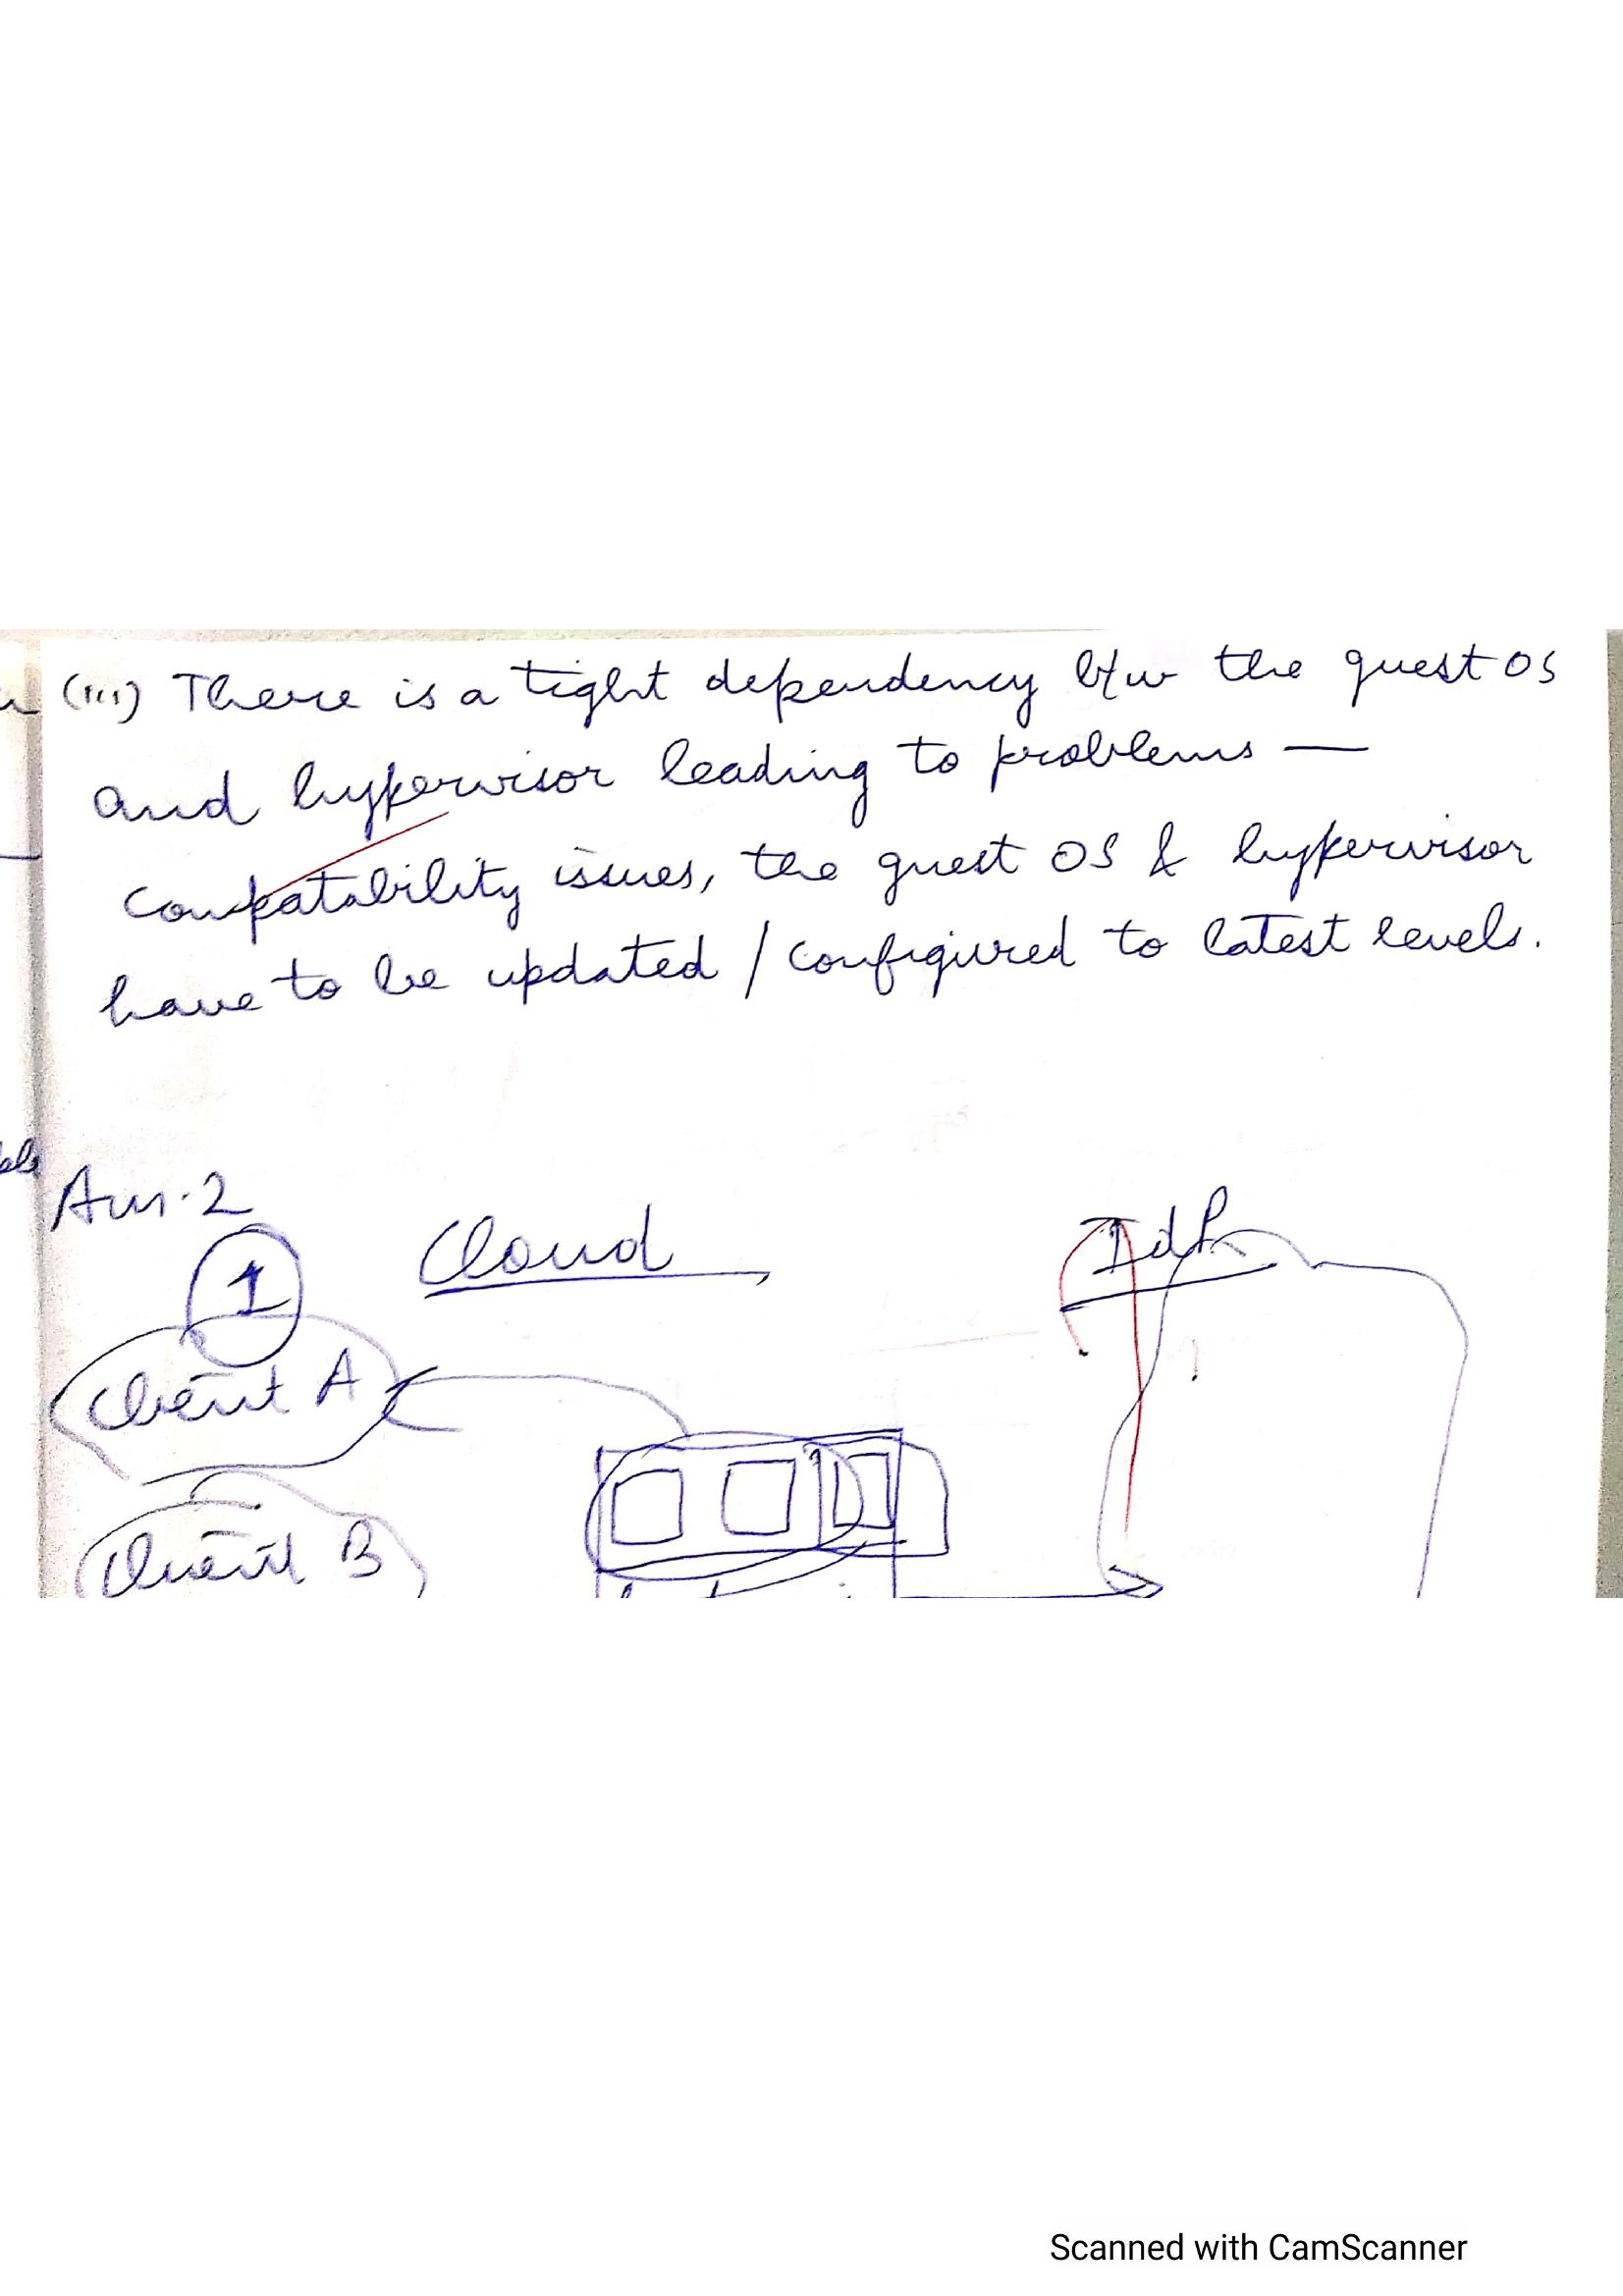 (iii) There is a tight dependency b/w the guest OS
and hypervisor leading to problems —
compatability issues, the guest OS & hypervisor
have to be updated / configured to latest levels.
Ans.2
Cloud IdP
1
Client A
Client B
Scanned with CamScanner